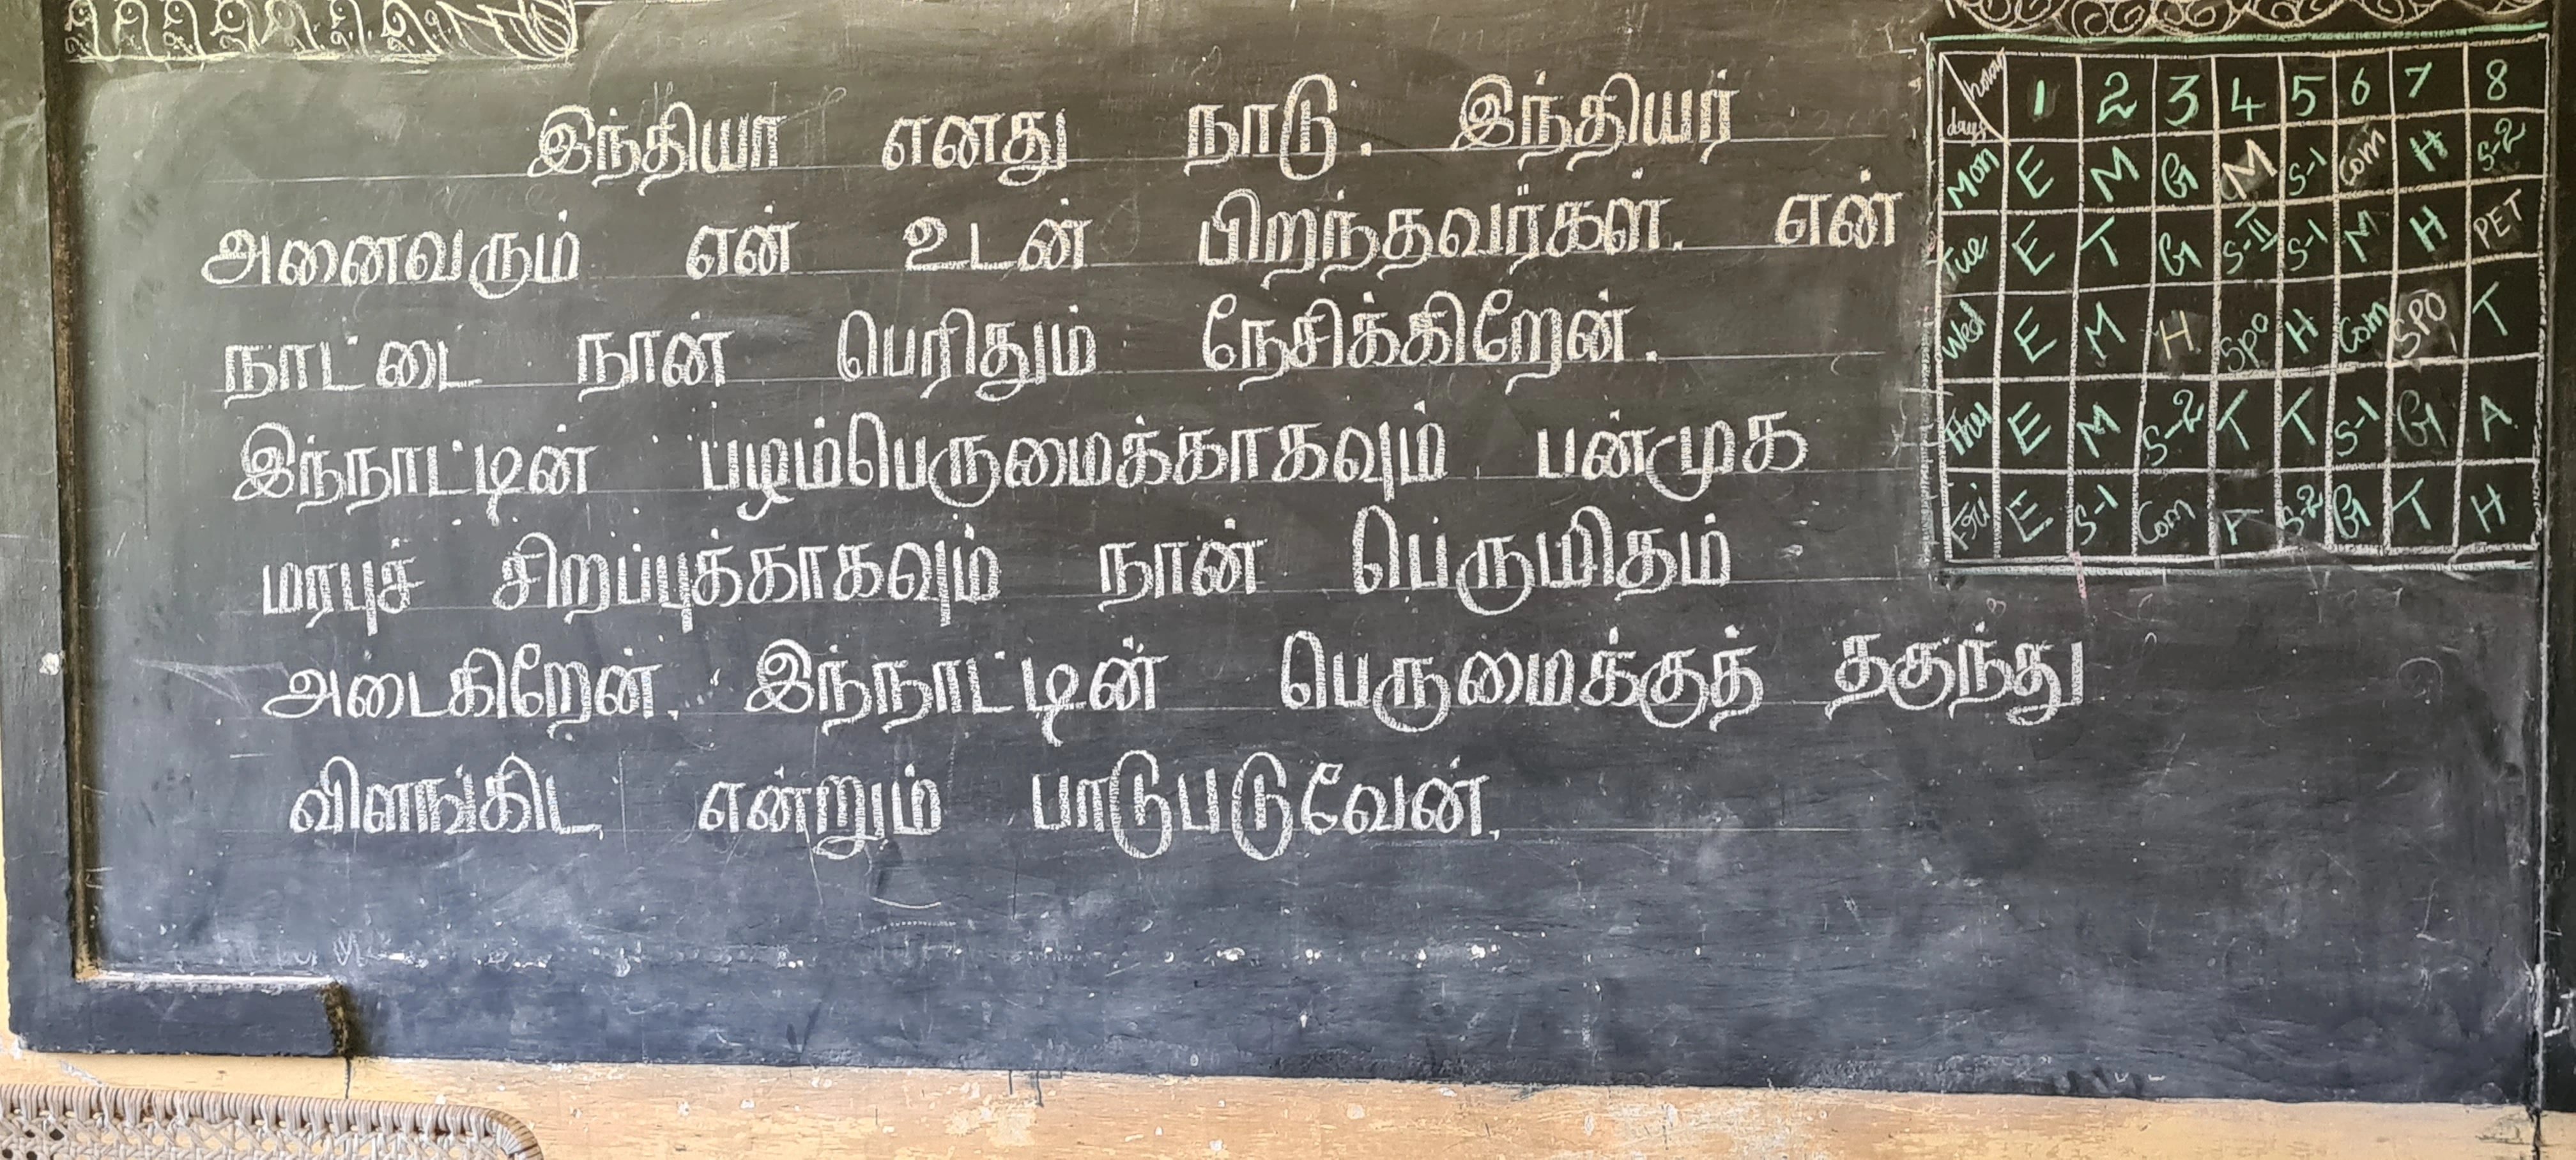 இந்தியா எனது நாடு. இந்தியர்
அனைவரும் என் உடன் பிறந்தவர்கள். என்
நாட்டை நான் பெரிதும் நேசிக்கிறேன்.
இந்நாட்டின் பழம்பெருமைக்காகவும் பன்முக
மரபுச் சிறப்புக்காகவும் நான் பெருமிதம்
அடைகிறேன். இந்நாட்டின் பெருமைக்குத் தகுந்து
விளங்கிட என்றும் பாடுபடுவேன்.
hour
days 1 2 3 4 5 6 7 8
Mon E M G M S-1 Com H S-2
Tue E T G S-II S-1 M H PET
Wed E M H Spo H Com SPO T
Thu E M S-2 T T S-1 G A
Fri E S-1 Com S-2 G T H